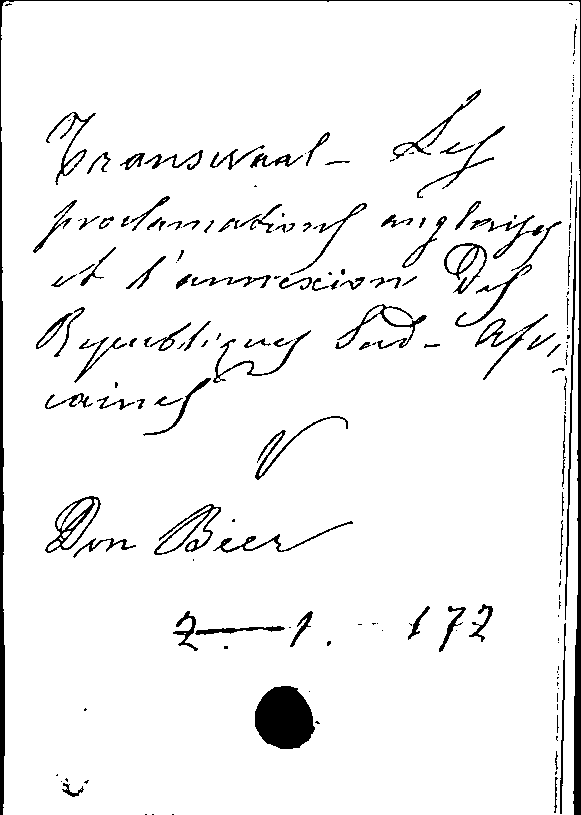 Transwaal - Les
proclamations anglaises
et l'annexion Des
Republiques Sud-Afri-
caines
V
Don Beer
2 — 1. - 172